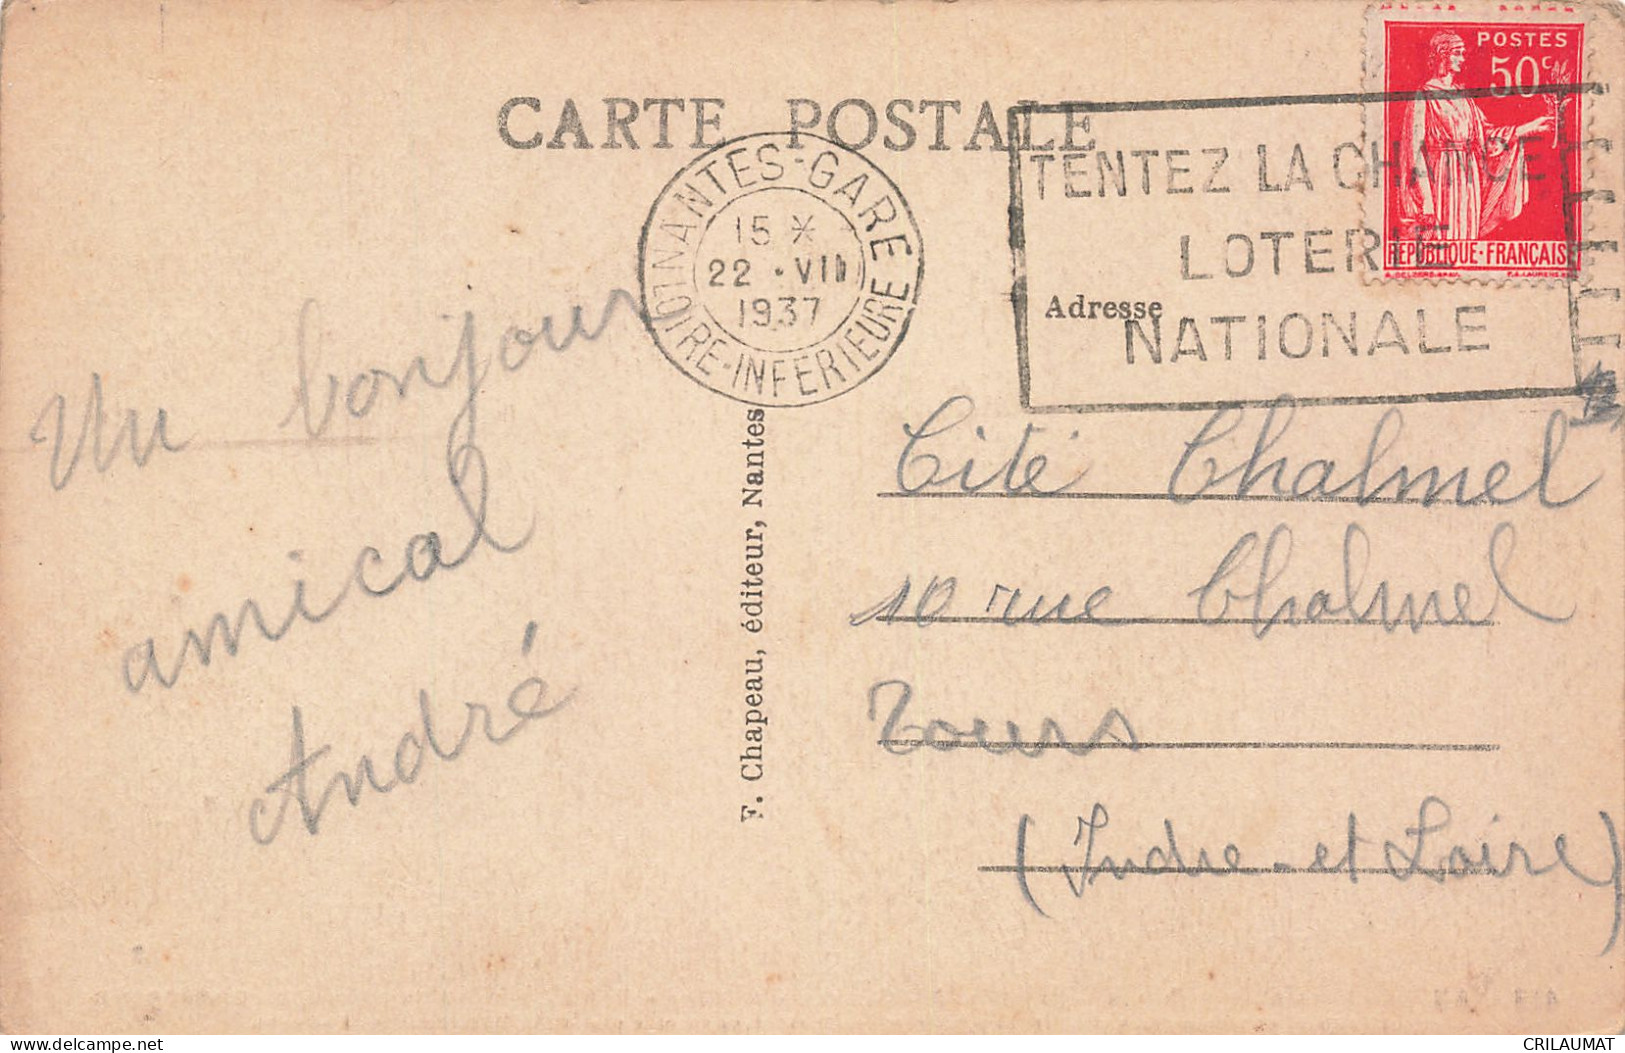 CARTE POSTALE
POSTES
50c
REPUBLIQUE·FRANÇAISE
NANTES-GARE
15 *
22 · VII
1937
LOIRE-INFERIEURE
TENTEZ LA CHANCE
LOTERIE
NATIONALE
Adresse
Un bonjour
amical
André
F. Chapeau, éditeur, Nantes
Cité Chalmel
10 rue Chalmel
Tours
(Indre-et Loire)
delcampe.net
CRILAUMAT